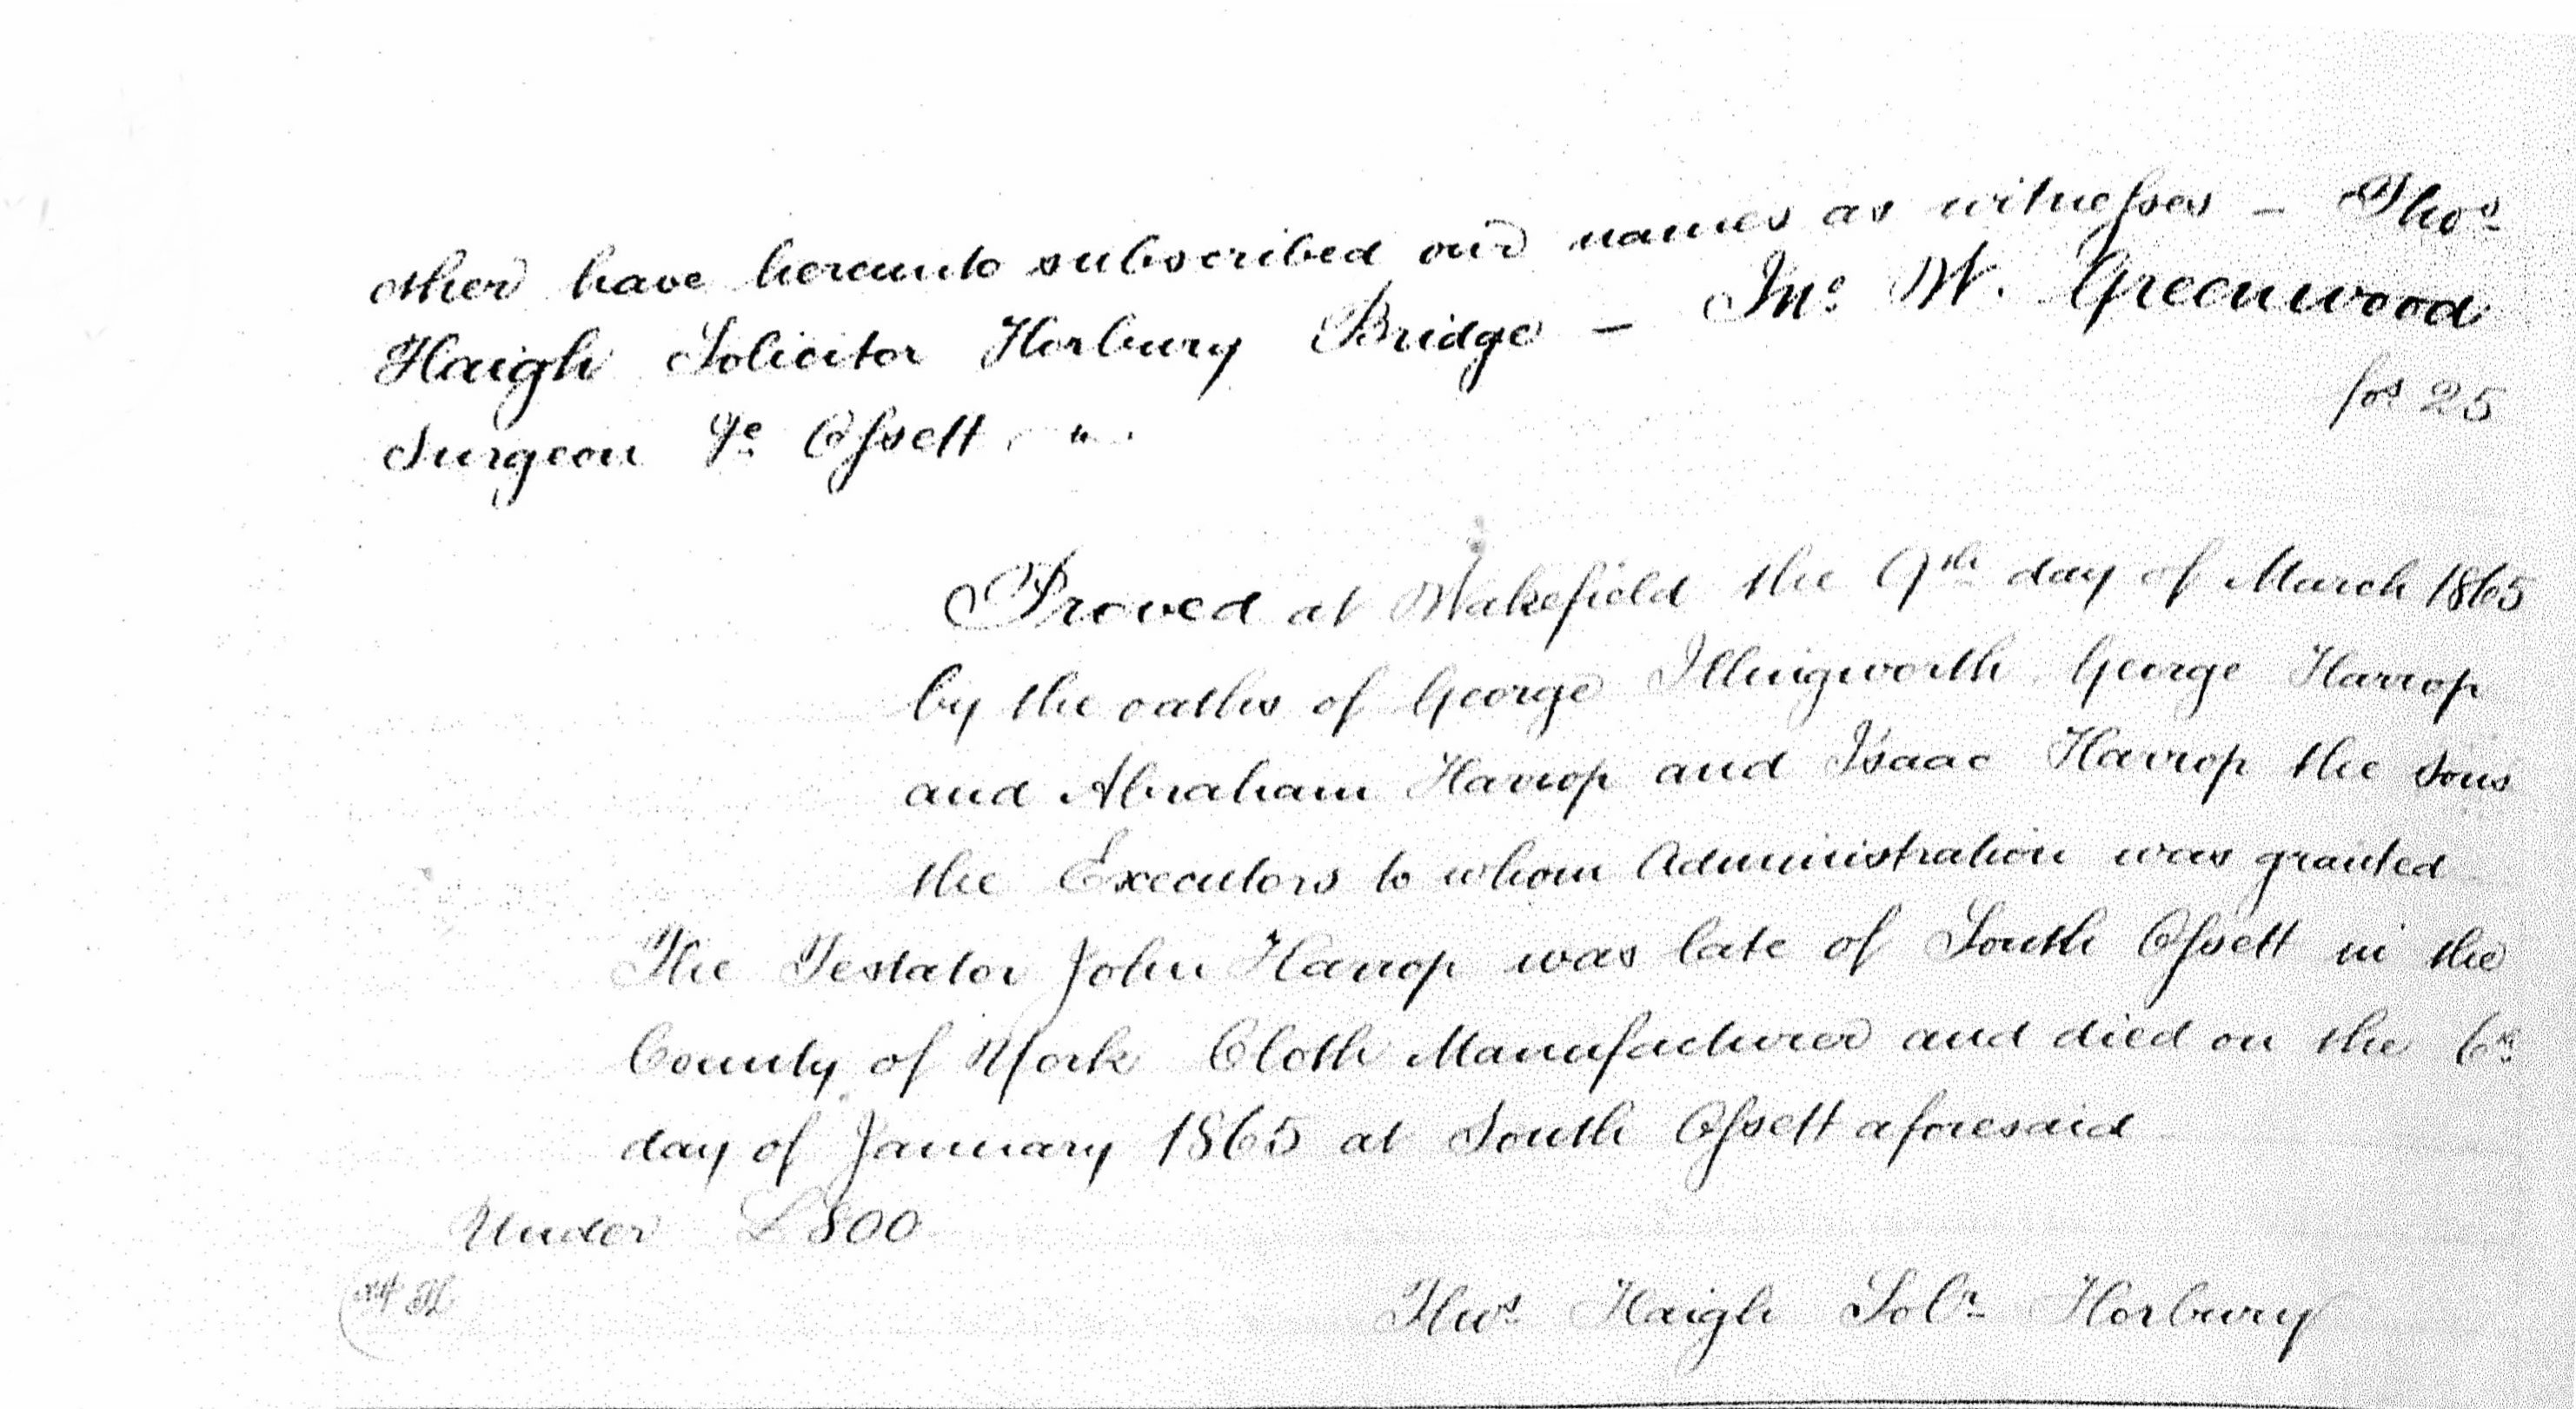 other have hereunto subscribed our names as witnesses – Thos
Haigh Solicitor Horbury Bridge – Jno W. Greenwood
Surgeon &c Ossett
fos 25
Proved at Wakefield the 9th day of March 1865
by the oaths of George Illingworth George Harrop
and Abraham Harrop and Isaac Harrop the Sons
the Executors to whom Administration was granted
The Testator John Harrop was late of South Ossett in the
County of York Cloth Manufacturer and died on the 6th
day of January 1865 at South Ossett aforesaid
Under £800
Thos Haigh Solr Horbury